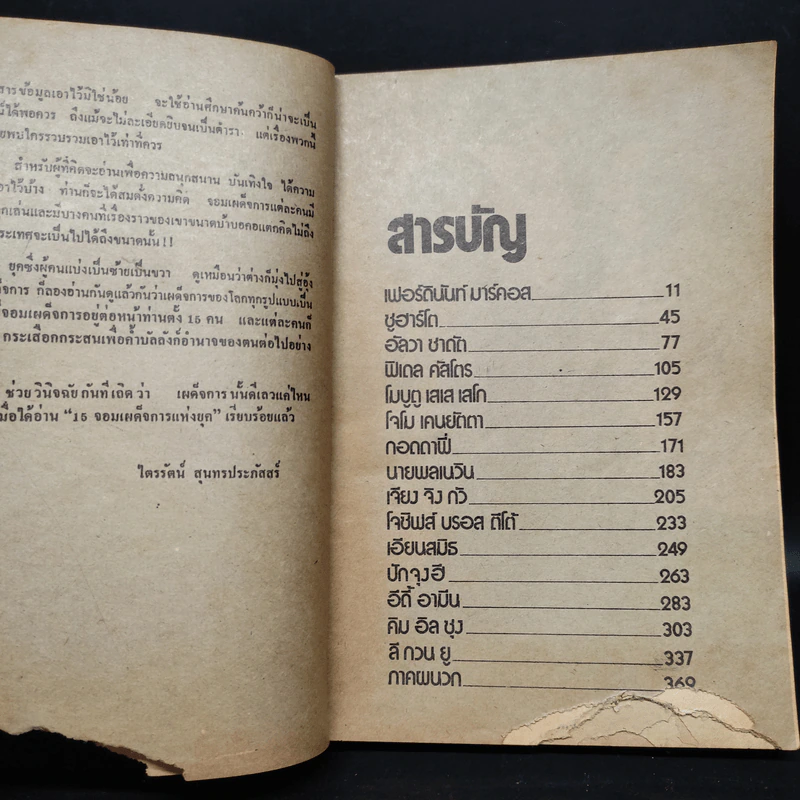 สารข้อมูลเอาไว้มิใช่น้อย จะใช้อ่านศึกษาค้นคว้าก็น่าจะเป็น
ได้พอควร ถึงแม้จะไม่ละเอียดยิบจนเป็นตำรา แต่เรื่องพวกนี้
พบใครรวบรวมเอาไว้เท่าที่ควร
สำหรับผู้ที่คิดจะอ่านเพื่อความสนุกสนาน บันเทิงใจ ได้ความ
เอาไว้บ้าง ท่านก็จะได้สมดั่งความคิด จอมเผด็จการแต่ละคนมี
เล่นและมีบางคนที่เรื่องราวของเขาขนาดบ้าบอคอแตกคิดไม่ถึง
ประเทศจะเป็นไปได้ถึงขนาดนั้น!!
ยุคซึ่งผู้คนแบ่งเป็นซ้ายเป็นขวา ดูเหมือนว่าต่างก็มุ่งไปสู่อุ้ง
การ ก็ลองอ่านกันดูแล้วกันว่าเผด็จการของโลกทุกรูปแบบเป็น
จอมเผด็จการอยู่ต่อหน้าท่านตั้ง 15 คน และแต่ละคนก็
กระเสือกกระสนเพื่อค้ำบัลลังก์อำนาจของตนต่อไปอย่าง
ช่วยวินิจฉัยกันทีเถิดว่า เผด็จการนั้นดีเลวแค่ไหน
เมื่อได้อ่าน “15 จอมเผด็จการแห่งยุค” เรียบร้อยแล้ว
ไตรรัตน์ สุนทรประภัสสร์
สารบัญ
เฟอร์ดินันท์ มาร์คอส 11
ซูฮาร์โต 45
อัลวา ซาดัต 77
ฟิเดล คัสโตร 105
โมบูตู เสเส เสโก 129
โจโม เคนยัตตา 157
กอดดาฟี่ 171
นายพลเนวิน 183
เจียง จิง กัว 205
โจซิฟส์ บรอส ตีโต้ 233
เอียนสมิธ 249
ปักจุงฮี 263
อีดี้ อามีน 283
คิม อิล ซุง 303
ลี กวน ยู 337
ภาคผนวก 369